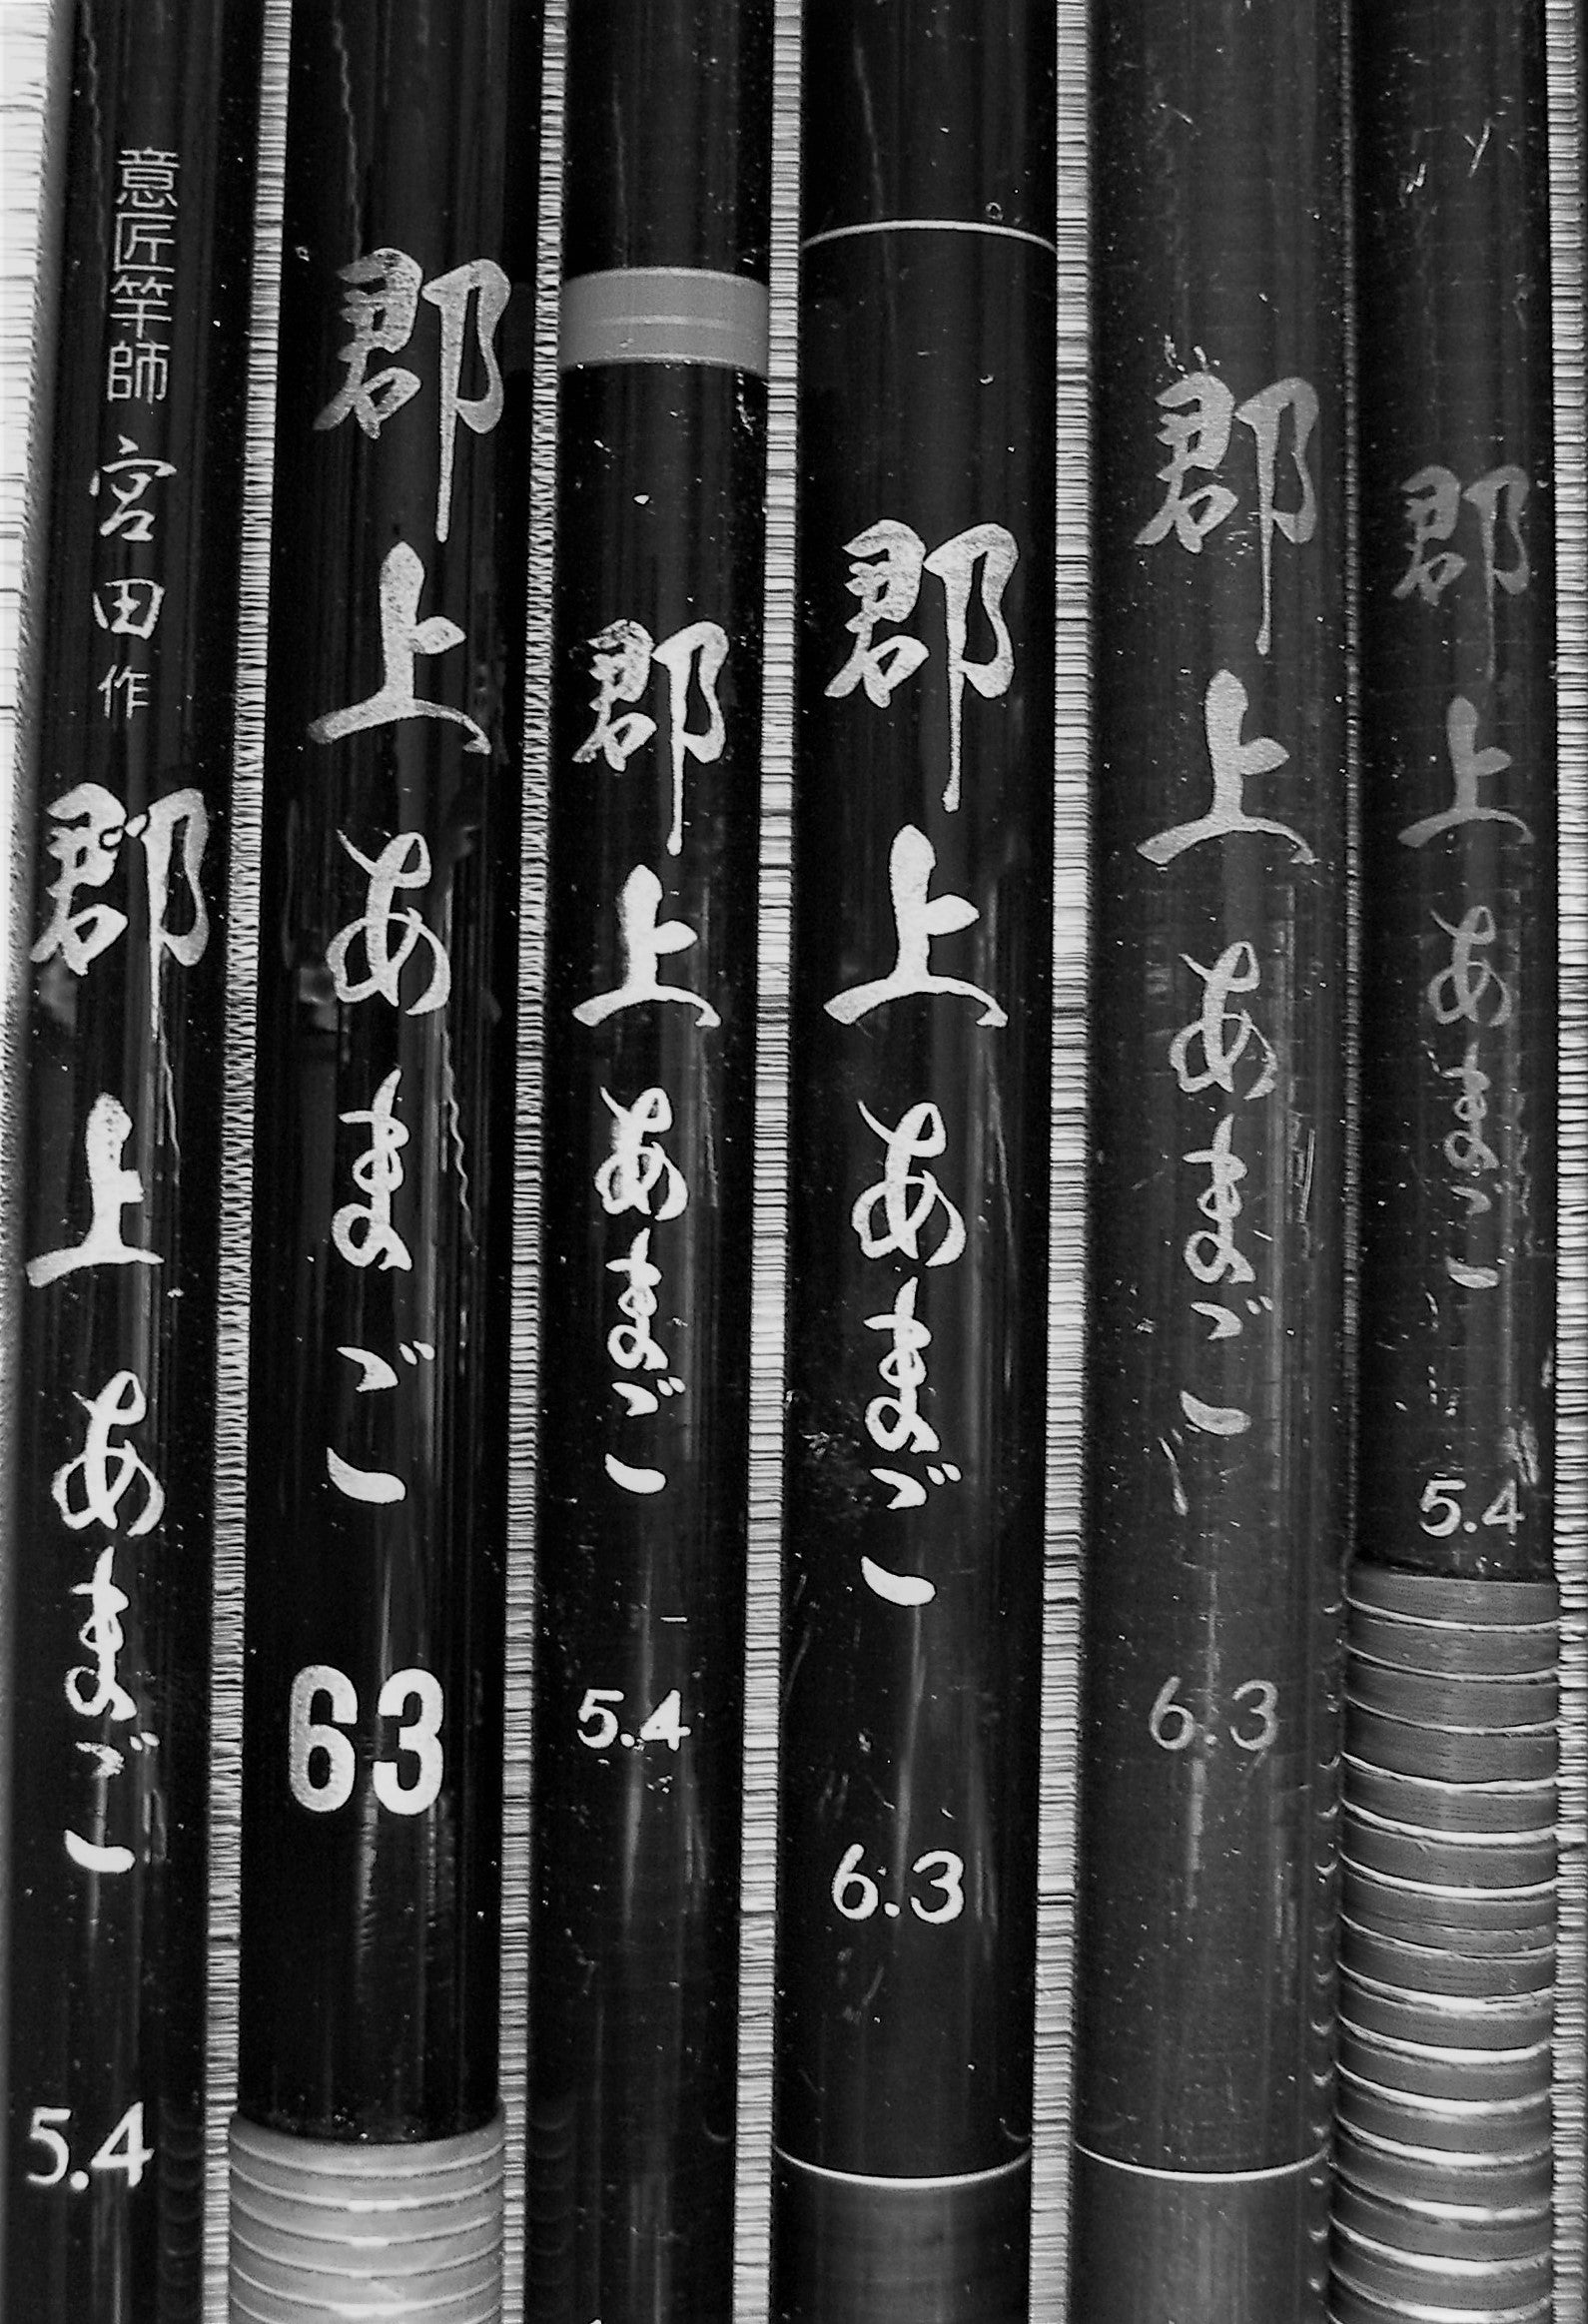 意匠竿師 宮田作
郡上あまご
5.4
郡上あまご
63
郡上あまご
5.4
郡上あまご
6.3
郡上あまご
6.3
郡上あまご
5.4